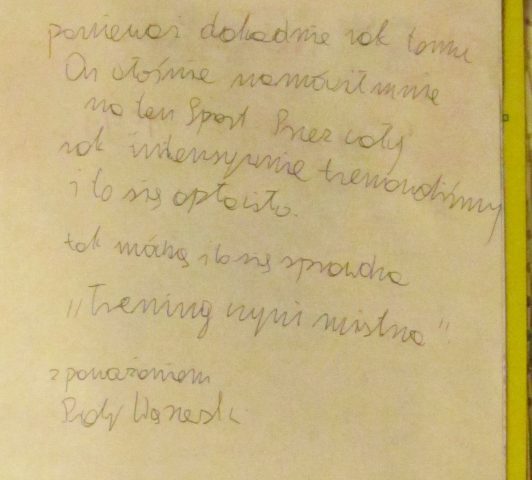 ponieważ dokadnie rok temu
On włośnie namówił mnie
na ten Sport Przez cały
rok intensywnie trenowaliśmy
i to się opłaciło.
tak mówią i to się sprawdza
„Trening czyni mistrza"
z poważaniem